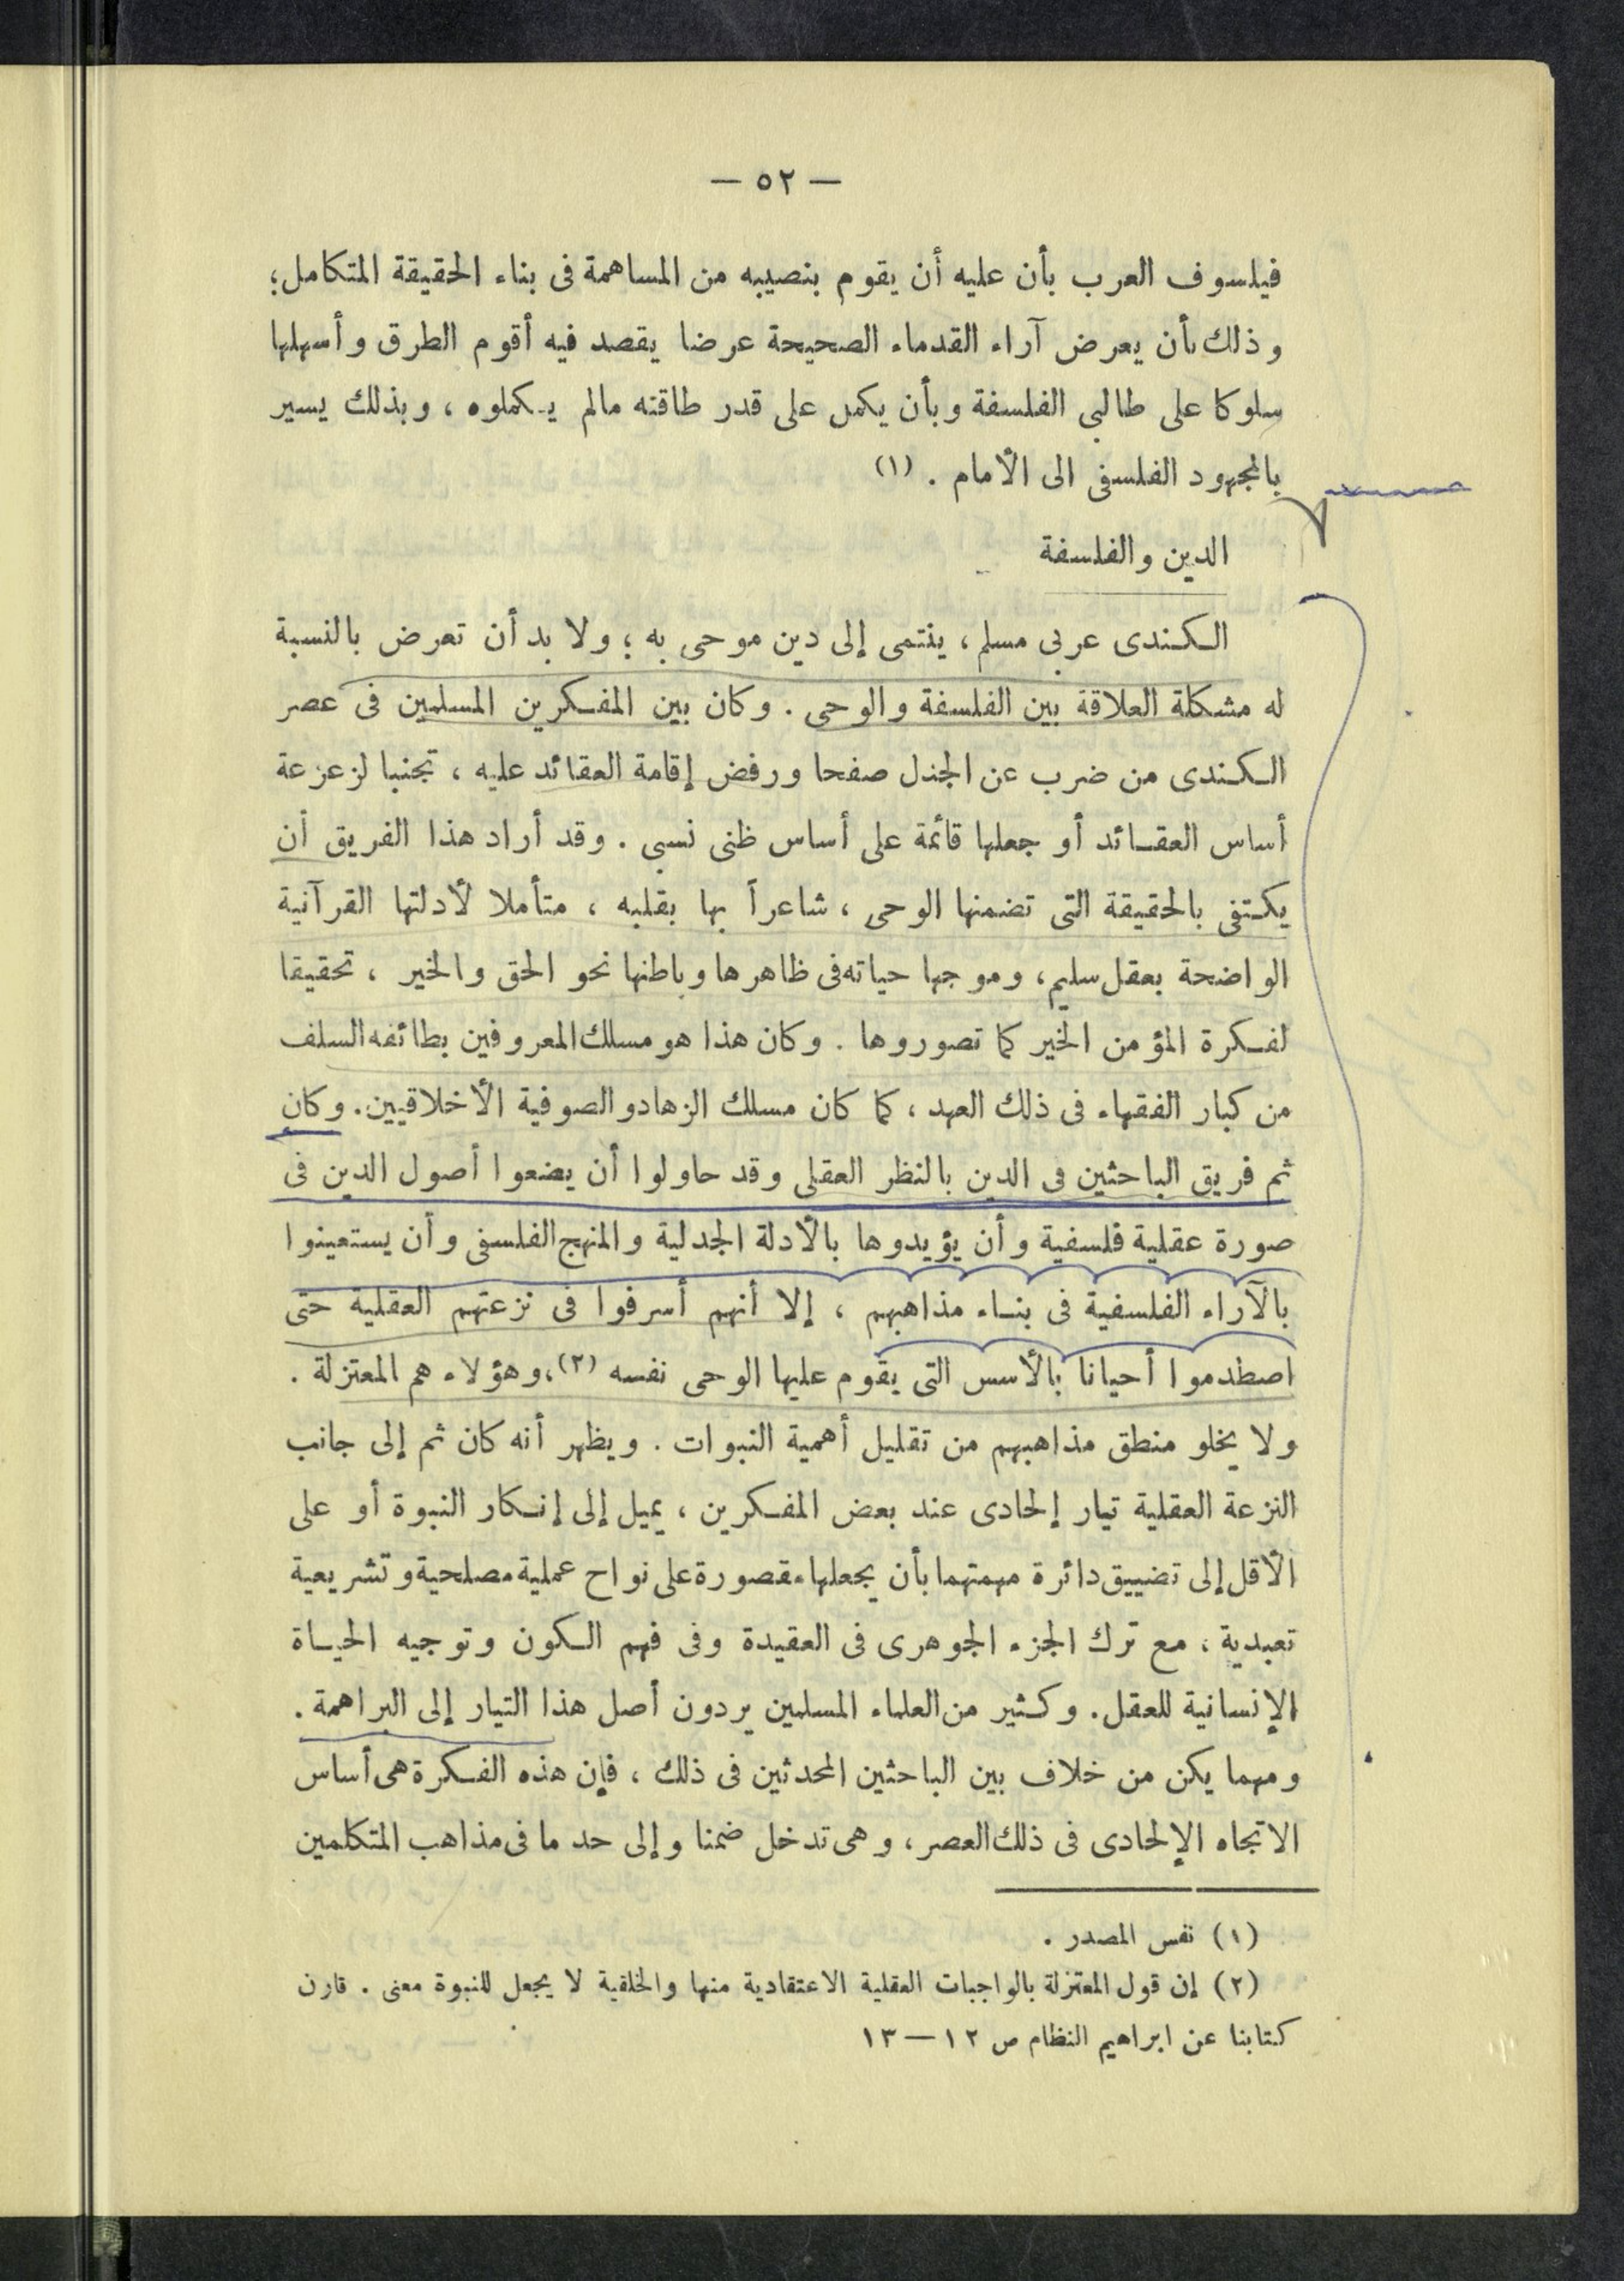 — ٥٢ —
فيلسوف العرب بأن عليه أن يقوم بنصيبه من المساهمة فى بناء الحقيقة المتكامل؛
وذلك بأن يعرض آراء القدماء الصحيحة عرضا يقصد فيه أقوم الطرق وأسهلها
سلوكا على طالبى الفلسفة وبأن يكمل على قدر طاقته مالم يكملوه ، وبذلك يسير
بالمجهود الفلسفى الى الأمام . (١)
الدين والفلسفة
الكندى عربى مسلم ، ينتمى إلى دين موحى به ؛ ولا بد أن تعرض بالنسبة
له مشكلة العلاقة بين الفلسفة والوحى . وكان بين المفكرين المسلمين فى عصر
الكندى من ضرب عن الجدل صفحا ورفض إقامة العقائد عليه ، تجنبا لزعزعة
أساس العقائد أو جعلها قائمة على أساس ظنى نسبى . وقد أراد هذا الفريق أن
يكتفى بالحقيقة التى تضمنها الوحى ، شاعراً بها بقلبه ، متأملا لأدلتها القرآنية
الواضحة بعقل سليم ، وموجها حياته فى ظاهرها وباطنها نحو الحق والخير ، تحقيقا
لفكرة المؤمن الخير كما تصوروها . وكان هذا هو مسلك المعروفين بطائفه السلف
من كبار الفقهاء فى ذلك العهد ، كما كان مسلك الزهاد والصوفية الأخلاقيين . وكان
ثم فريق الباحثين فى الدين بالنظر العقلى وقد حاولوا أن يضعوا أصول الدين فى
صورة عقلية فلسفية وأن يؤيدوها بالأدلة الجدلية والمنهج الفلسفى وأن يستعينوا
بالآراء الفلسفية فى بناء مذاهبهم ، إلا أنهم أسرفوا فى نزعتهم العقلية حتى
اصطدموا أحيانا بالأسس التى يقوم عليها الوحى نفسه (٢)، وهؤلاء هم المعتزلة .
ولا يخلو منطق مذاهبهم من تقليل أهمية النبوات . ويظهر أنه كان ثم إلى جانب
النزعة العقلية تيار إلحادى عند بعض المفكرين ، يميل إلى إنكار النبوة أو على
الأقل إلى تضييق دائرة مهمتهما بأن يجعلها مقصورة على نواح عملية مصلحية وتشريعية
تعبدية ، مع ترك الجزء الجوهرى فى العقيدة وفى فهم الكون وتوجيه الحياة
الإنسانية للعقل . وكثير من العلماء المسلمين يردون أصل هذا التيار إلى البراهمة .
ومهما يكن من خلاف بين الباحثين المحدثين فى ذلك ، فإن هذه الفكرة هى أساس
الاتجاه الإلحادى فى ذلك العصر ، وهى تدخل ضمنا وإلى حد ما فى مذاهب المتكلمين
(١) نفس المصدر .
(٢) إن قول المعتزلة بالواجبات العقلية الاعتقادية منها والخلقية لا يجعل للنبوة معنى . قارن
كتابنا عن ابراهيم النظام ص ١٢ — ١٣